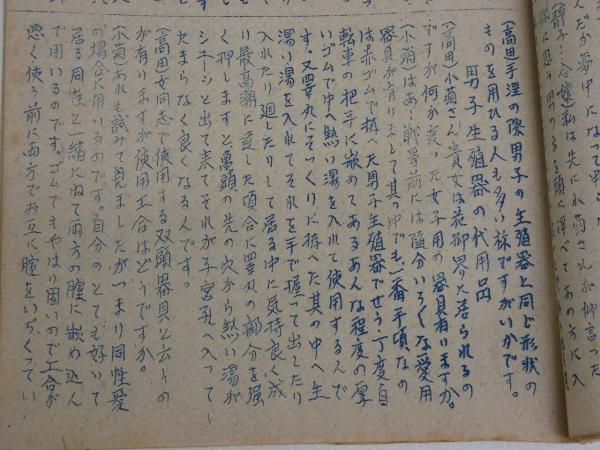 んだが夢中になって
(高田)手淫の際男子の生殖器と同じ形状の
ものを用ひる人も多い様ですがいかです。
男子生殖器の代用品
(高田)小菊さん貴女は花柳界に居られるの
ですが何か変った女子用の器具有りますか。
(小菊)はあ…戦争前には随分いろくな愛用
器具が有りまして其の中でも一番手頃なの
は赤ゴムで拵へた男子生殖器でせう丁度自
転車の把手に嵌めてあるあんな程度の厚
いゴムで中へ熱い湯を入れて使用するんで
す。又睾丸にそっくりに拵へた其の中へ生
湯い湯を入れてそれを手で握って出したり
入れたり廻したりして居る中に気持良く成
り最高潮に達した頃合に睾丸の部分を強
く押しますと亀頭の先の穴から熱い湯が
シユーンと出て来てそれが子宮孔へ入って
たまらなく良くなるんです。
(高田)女同志で使用する双頭器具と云うの
が有りますが使用工合はどうですか。
(小菊)あれも試みて見ましたがつまり同性愛
の場合に用いるのです。自分のとても好いて
居る同性と一緒にねて両方の膣に嵌め込ん
で用いるのです。ゴムでもやはり固いので工合が
悪く使う前に両方でお互に膣をいぢくってい